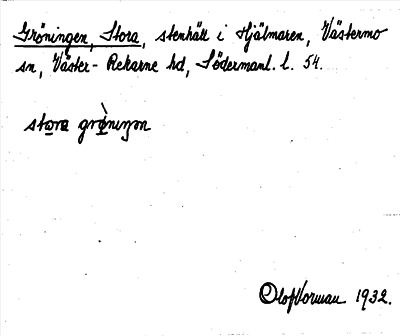 Gröningen, Stora, stenhäll i Hjälmaren, Västermo
sn, Väster-Rekarne hd, Södermanl. l. 54.
stora gròniŋən
Olof Vorman 1932.